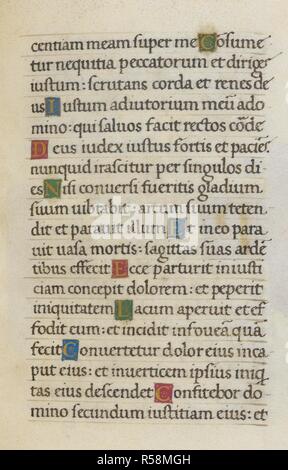 centiam meam super me Cosume
tur nequitia peccatorum et diriges
iustum: scrutans corda et renes de
us Iustum adiutorium meũ ado
mino: qui saluos facit rectos cõde
Deus iudex iustus fortis et paciẽs
nunquid irascitur per singulos di
es Nisi conversi fueritis gladium
suum vibrabit: arcum suum teten
dit et paravit illum Et in eo para
vit vasa mortis: sagittas suas ardẽ
tibus effecit Ecce parturit iniusti
ciam concepit dolorem: et peperit
iniquitatem Lacum aperuit et ef
fodit eum: et incidit in foveã quã
fecit Convertetur dolor eius in ca
put eius: et in verticem ipsius iniq
tas eius descendet Confitebor do
mino secundum iustitiam eius: et
alamy
Image ID: R58MGH
www.alamy.com